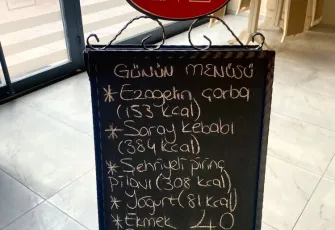 GÜNÜN MENÜSÜ
* Ezogelin çorba
(153 kcal)
* Saray kebabı
(384 kcal)
* Şehriyeli pirinç
pilavı (308 kcal)
* Yoğurt (81 kcal)
* Ekmek 40